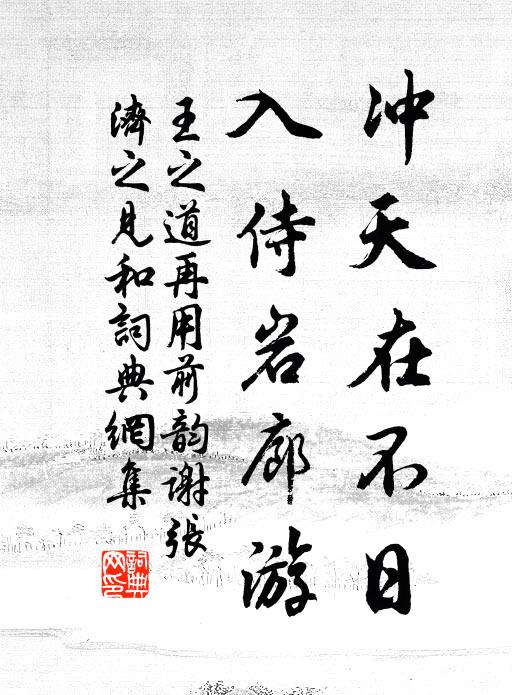 冲天在不日
入侍岩廊游
王之道再用前韵谢张
济之见和词典網集
詞典
网印